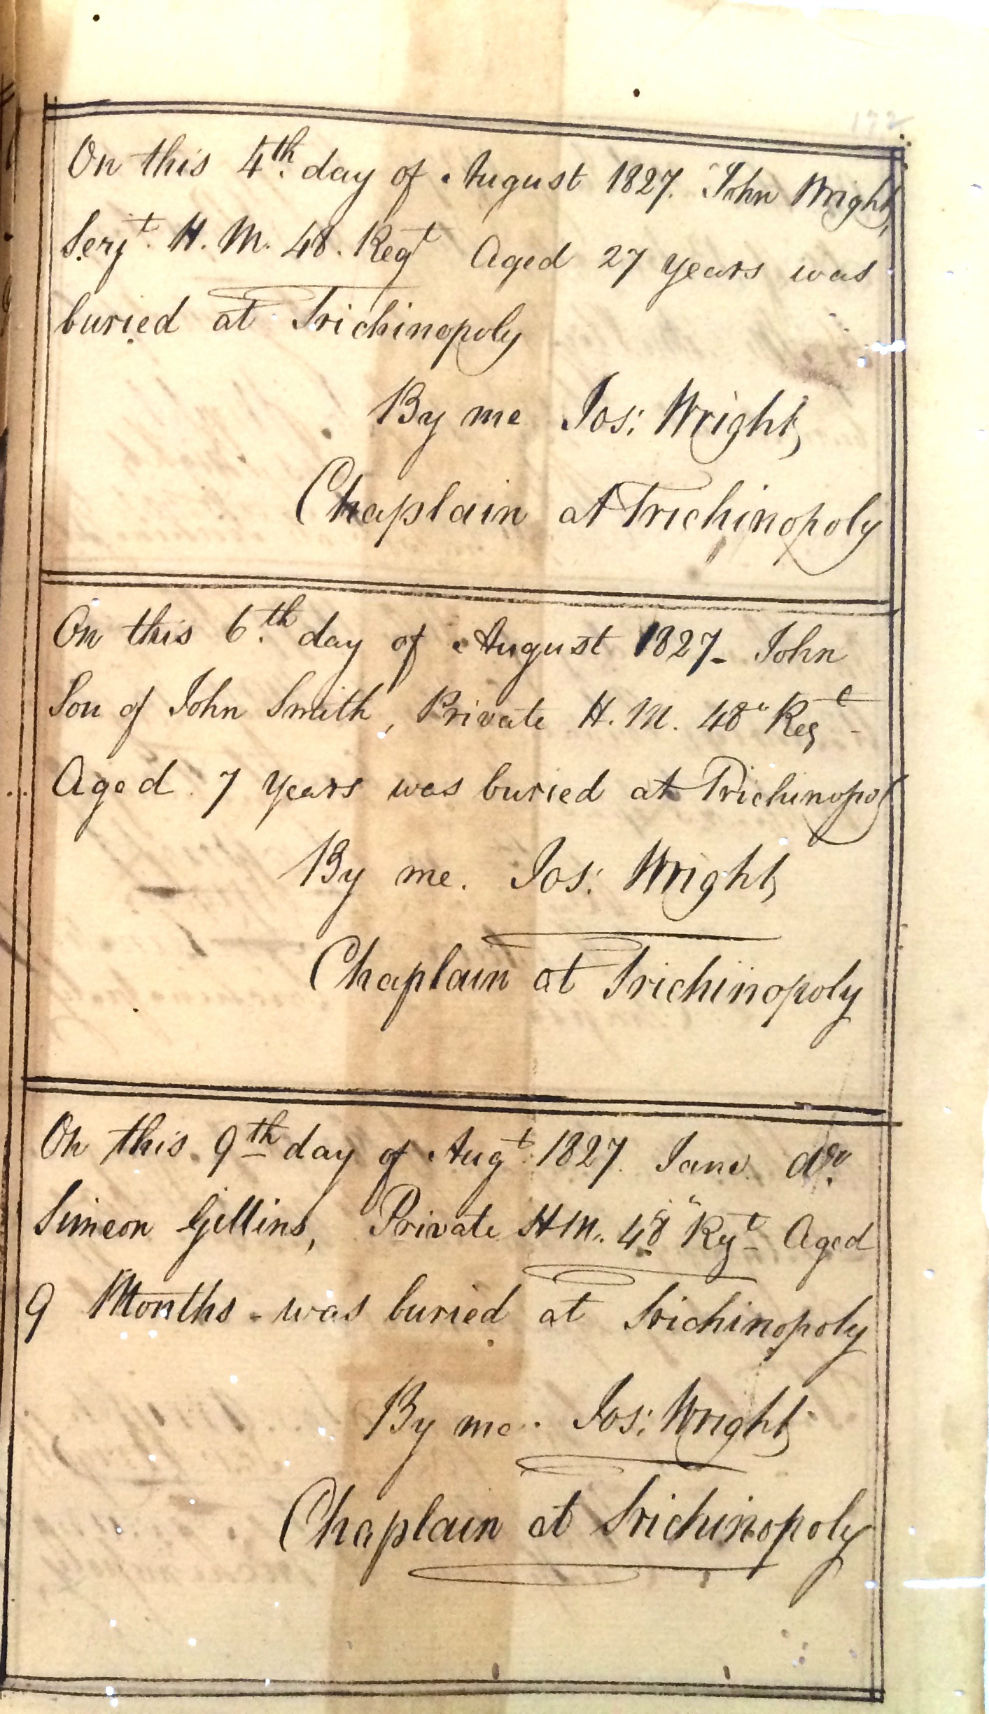 172
On this 4th. day of August 1827. John Wright,
Serjt. H. M. 48. Regt Aged 27 years was
buried at Trichinopoly
By me Jos: Wright,
Chaplain at Trichinopoly
On this 6.th day of August 1827 - John
Son of John Smith, Private H. M. 48" Regt -
Aged 7 years was buried at Trichinopol
By me. Jos: Wright,
Chaplain at Trichinopoly
On this 9th day of Augt. 1827. Jane Dr.
Simeon Gillins, Private H M. 48" Regt. Aged
9 Months - was buried at Trichinopoly
By me. Jos: Wright
Chaplain at Trichinopoly